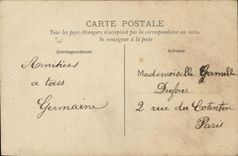 CARTE POSTALE
Tous les pays étrangers n'acceptent pas la correspondance au recto.
Se renseigner à la poste
Correspondance
Adresse
Amitiées
a tous
Germaine
Mademoiselle Camille
Dufour
2 rue du Cotentin
Paris